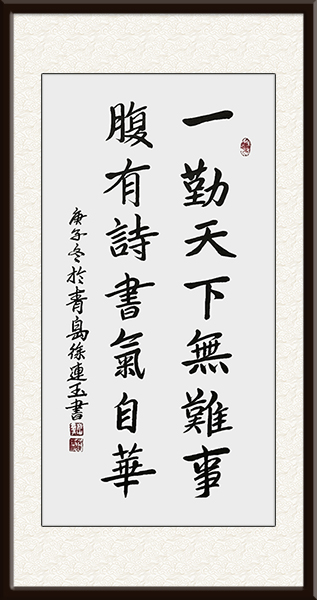 一勤天下無難事
腹有詩書氣自華
庚子冬於青島徐連玉書